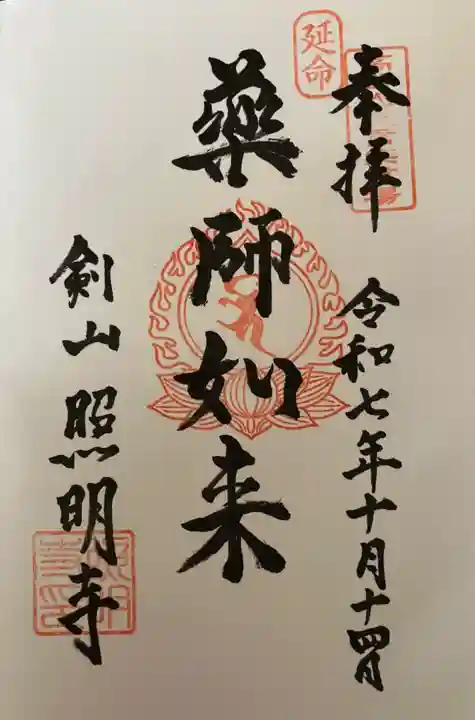 延命
奉拝
令和七年十月十四日
薬師如来
剣山 照明寺